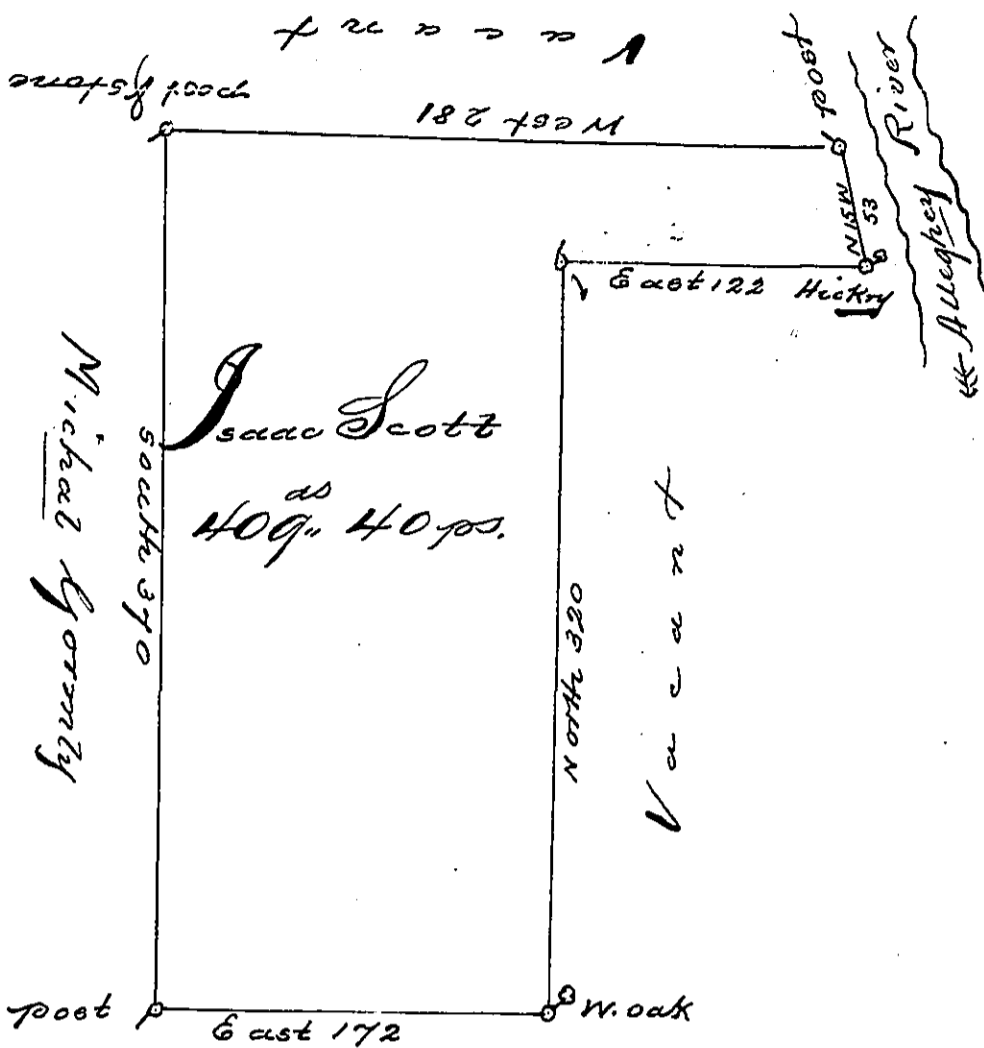 Vacant
post & stone
West 281
post
N 15 W
53
Alleghey River
East 122
Hickry
Michal Gormly
South 370
Isaac Scott
as
409" 40 ps.
North 320
Vacant
post
East 172
W. oak